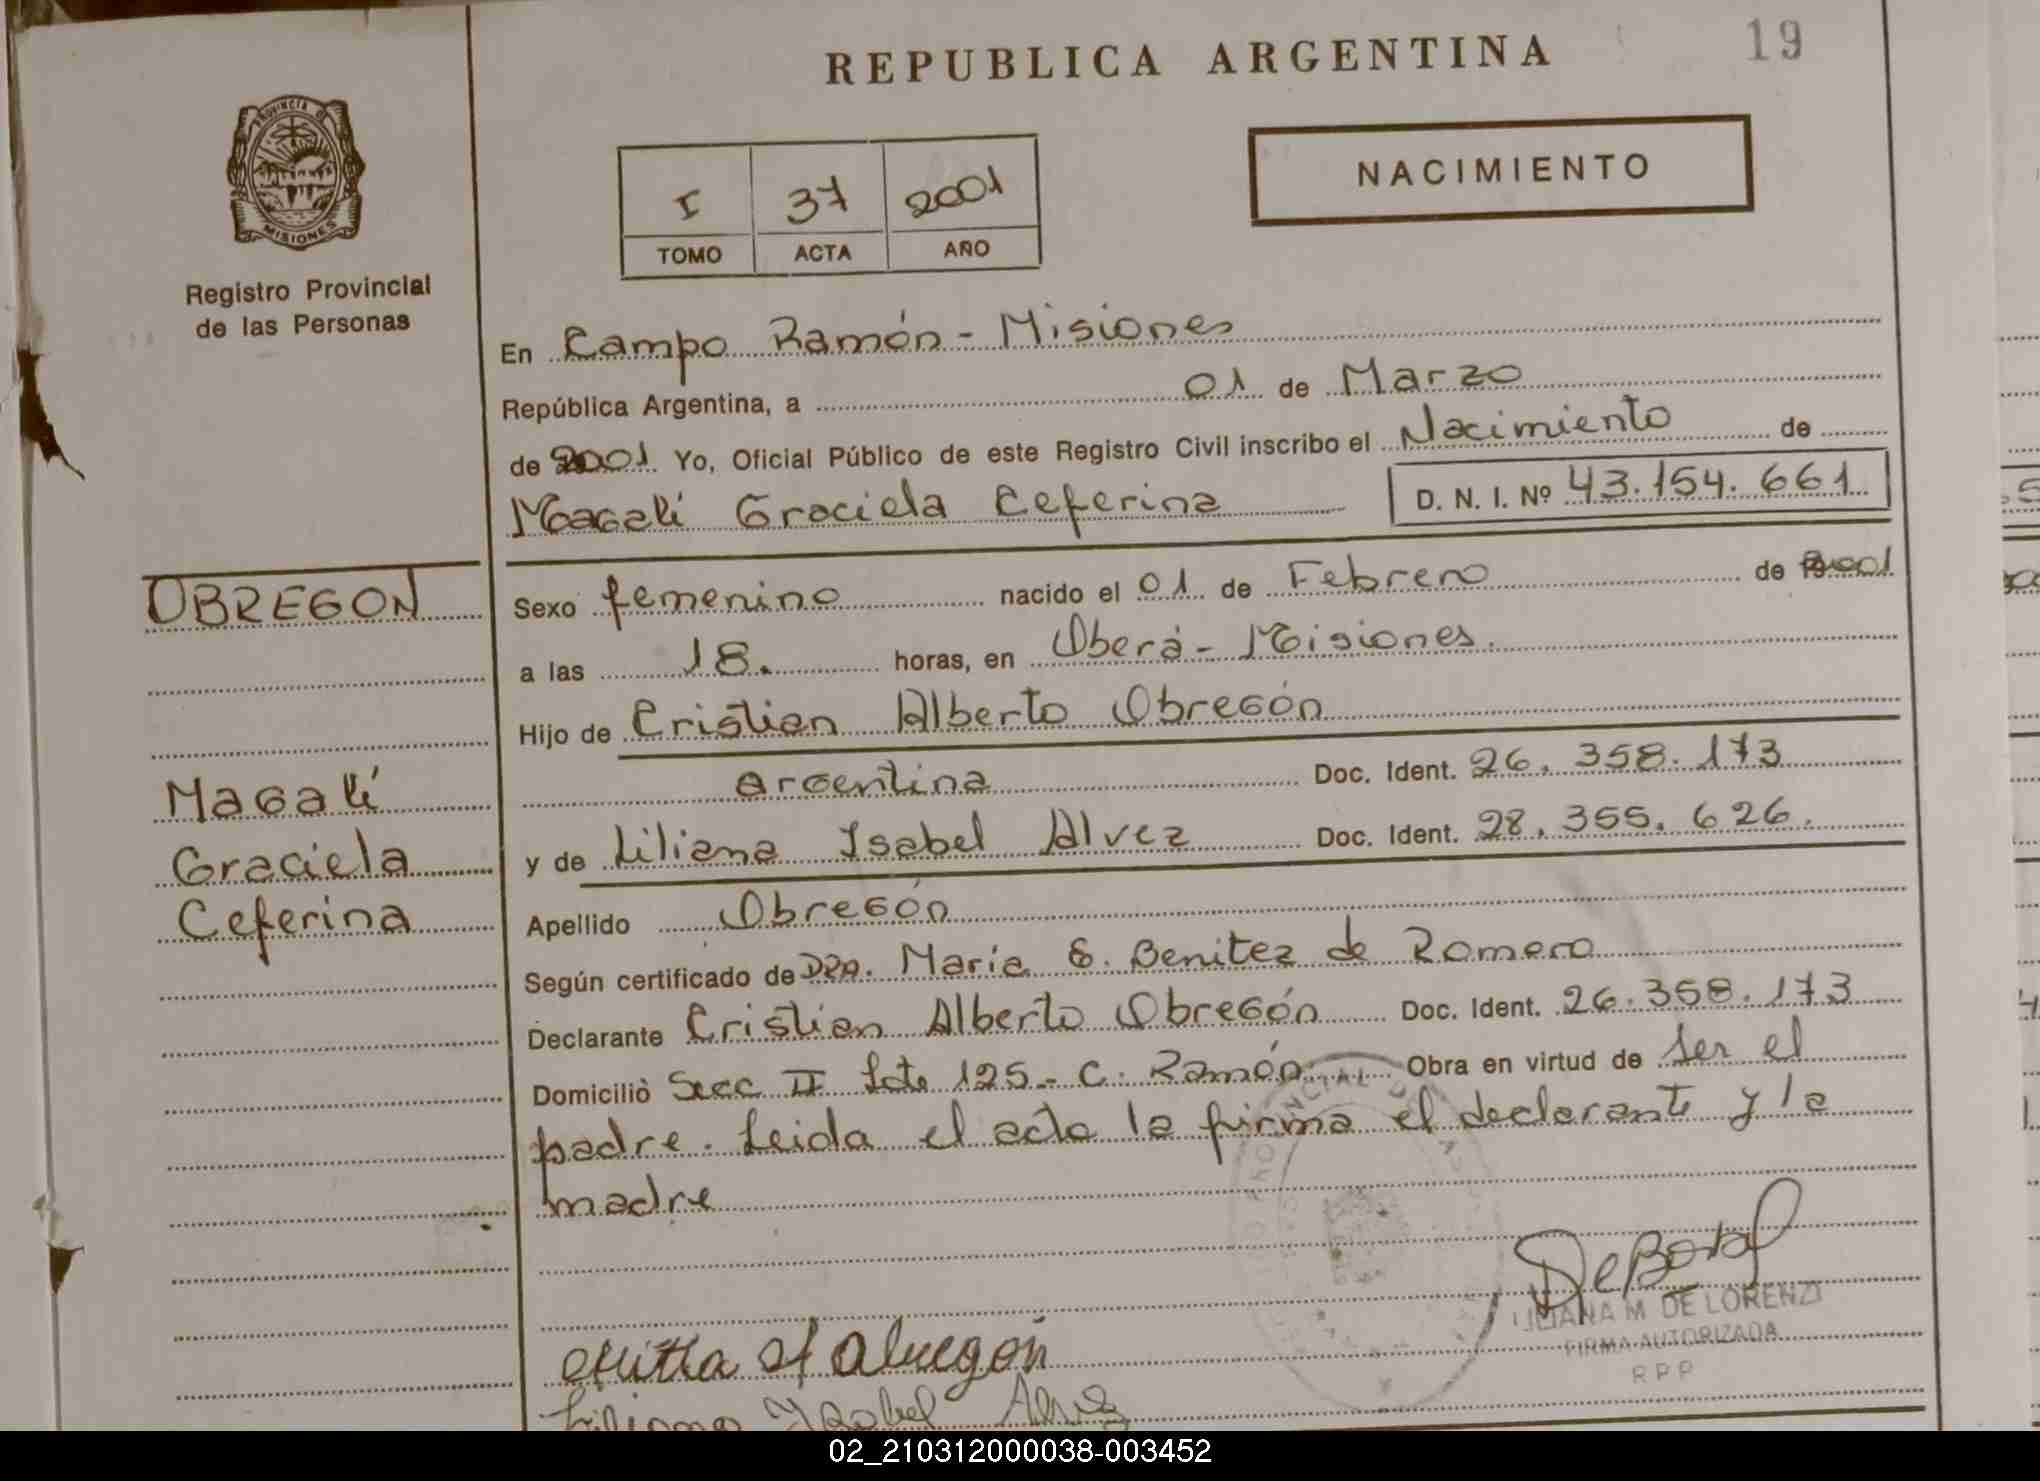 REPUBLICA ARGENTINA
19
PROVINCIA DE
MISIONES
Registro Provincial
de las Personas
I 37 2001
TOMO ACTA AÑO
NACIMIENTO
En Campo Ramón - Misiones
República Argentina, a 01 de Marzo
de 2001 Yo, Oficial Público de este Registro Civil inscribo el Nacimiento de
Magalí Graciela Ceferina D. N. I. Nº 43.154.661
OBREGON
Magalí
Graciela
Ceferina
Sexo femenino nacido el 01 de Febrero de 2001
a las 18. horas, en Oberá - Misiones.
Hijo de Cristian Alberto Obregón
argentina Doc. Ident. 26.358.173
y de Liliana Isabel Alvez Doc. Ident. 28.355.626.
Apellido Obregón
Según certificado de DRA. María E. Benitez de Romero
Declarante Cristian Alberto Obregón Doc. Ident. 26.358.173
Domicilio Secc II Lote 125 - C. Ramón Obra en virtud de ser el
padre. Leida el acta la firma el declarante y la
madre
LILIANA M DE LORENZI
FIRMA AUTORIZADA
R P P
Obregón
Liliana Ysabel Alvez
02_210312000038-003452